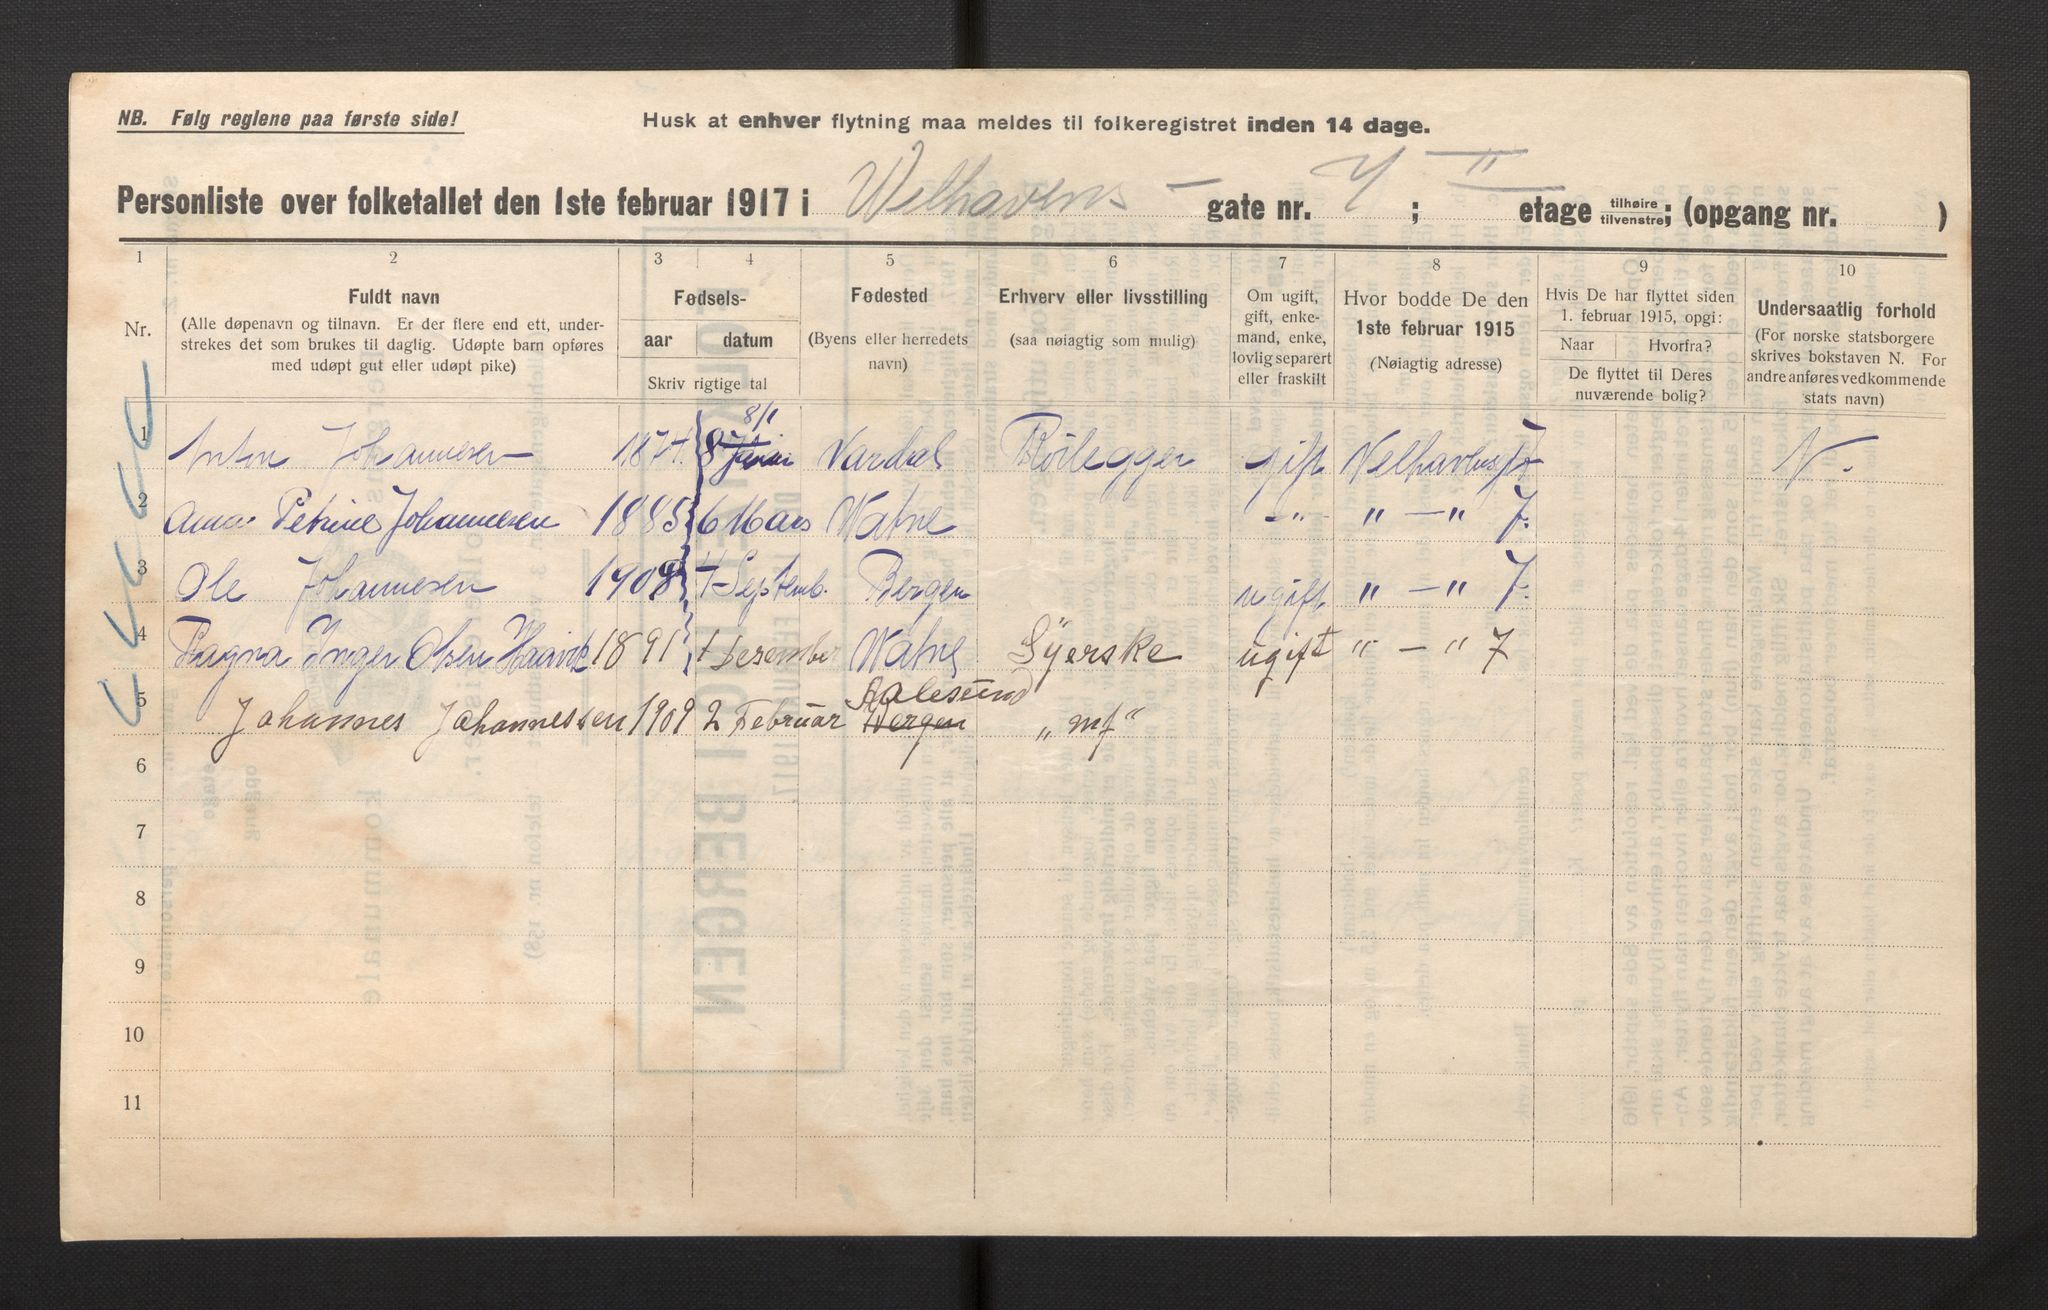 NB. Følg reglene paa første side!
Husk at enhver flytning maa meldes til folkeregistret inden 14 dage.
Personliste over folketallet den 1ste februar 1917 i Welhavens gate nr. 7; II etage tilhøire tilvenstre; (opgang nr. )
1 2 3 4 5 6 7 8 9 10
Nr. Fuldt navn (Alle døpenavn og tilnavn. Er der flere end ett, under-
strekes det som brukes til daglig. Udøpte barn opføres
med udøpt gut eller udøpt pike)
Fødsels-
aar datum
Skriv rigtige tal
Fødested
(Byens eller herredets
navn)
Erhverv eller livsstilling
(saa nøiagtig som mulig)
Om ugift,
gift, enke-
mand, enke,
lovlig separert
eller fraskilt
Hvor bodde De den
1ste februar 1915
(Nøiagtig adresse)
Hvis De har flyttet siden
1. februar 1915, opgi:
Naar Hvorfra?
De flyttet til Deres
nuværende bolig?
Undersaatlig forhold
(For norske statsborgere
skrives bokstaven N. For
andre anføres vedkommende
stats navn)
8/1
1 Anton Johannesen 1874 8 Januar Vardal Rørlegger gift Velhavensgt 7 N.
2 Anna Petrine Johannesen 1885 6 Mars Vatne -"- " — " 7.
3 Ole Johannesen 1908 4 Septemb. Bergen ugift " — " 7.
4 Ragna Inger Olsen Haavik 1891 1 Desember Vatne Syerske ugift " — " 7
Aalesund
5 Johannes Johannessen 1909 2 Februar Bergen "mf"
6
7
8
9
10
11